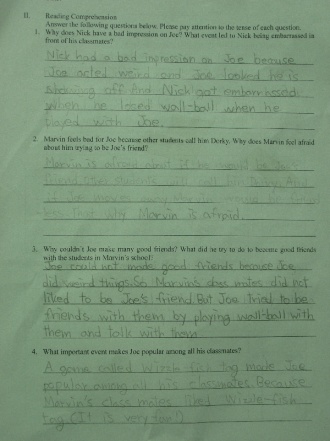 II. Reading Comprehension
Answer the following questions below. Please pay attention to the tense of each question.
1. Why does Nick have a bad impression on Joe? What event led to Nick being embarrassed in
front of his classmates?
Nick had a bad impression on Joe because
Joe acted weird and Joe looked he is
showing off. And Nick got embarrassed
when he losed wall-ball when he
played with Joe.
2. Marvin feels bad for Joe because other students call him Dorky. Why does Marvin feel afraid
about him trying to be Joe's friend?
Marvin is afraid
why Marvin is afraid.
3. Why couldn't Joe make many good friends? What did he try to do to become good friends
with the students in Marvin's school?
Joe could not made good friends because Joe
did weird things. So Marvin's class mates did not
liked to be Joe's friend. But Joe tried to be
friends with them by playing wall-ball with
them and talk with them
4. What important event makes Joe popular among all his classmates?
A game called Wizzle-fish tag made Joe
popular among all his classmates. Because
Marvin's class mates liked Wizzle-fish
tag. (It is very fun)